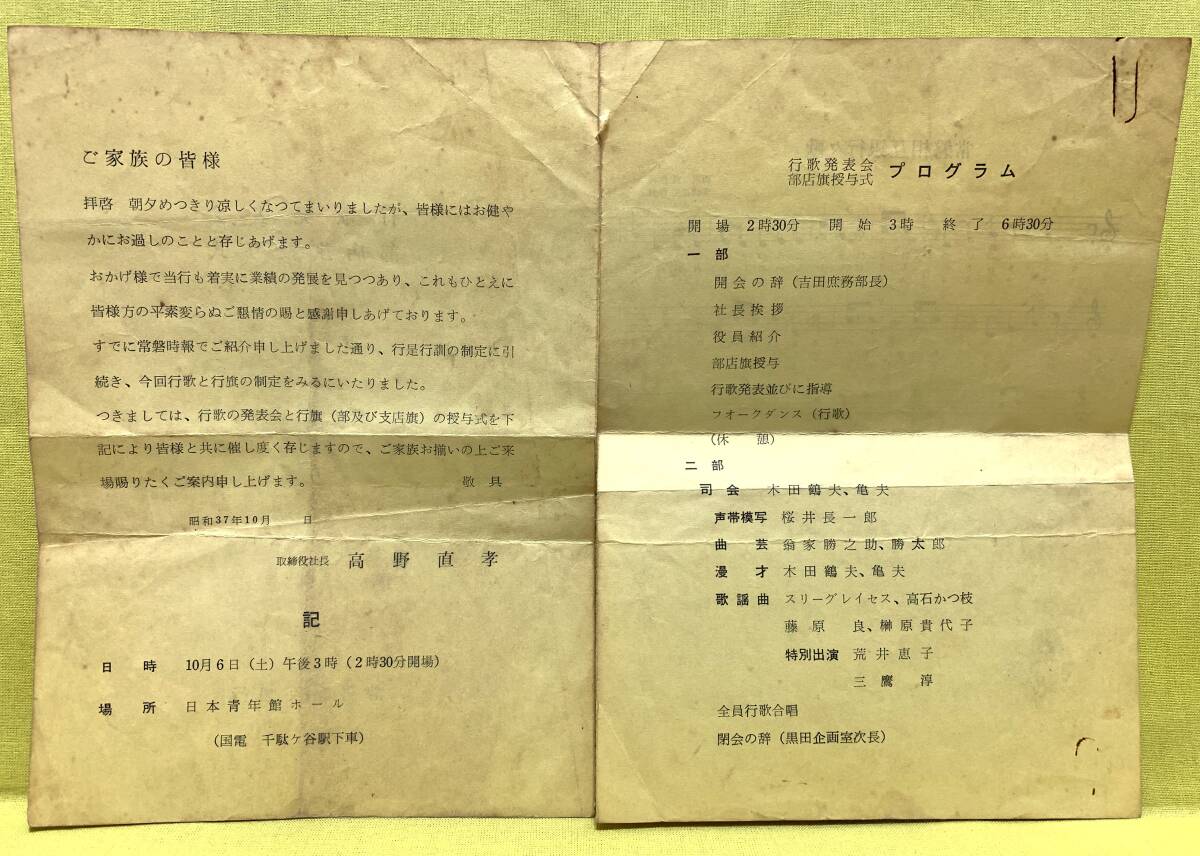 ご家族の皆様
拝啓　朝夕めつきり凉しくなつてまいりましたが、皆様にはお健や
かにお過しのことと存じあげます。
おかげ様で当行も着実に業績の発展を見つつあり、これもひとえに
皆様方の平素変らぬご懇情の賜と感謝申しあげております。
すでに常磐時報でご紹介申し上げました通り、行是行訓の制定に引
続き、今回行歌と行旗の制定をみるにいたりました。
つきましては、行歌の発表会と行旗（部及び支店旗）の授与式を下
記により皆様と共に催し度く存じますので、ご家族お揃いの上ご来
場賜りたくご案内申し上げます。　敬具
昭和37年10月　日
取締役社長　高野直孝
記
日時　10月6日（土）午後3時（2時30分開場）
場所　日本青年館ホール
（国電　千駄ケ谷駅下車）
行歌発表会
部店旗授与式　プログラム
開場　2時30分　開始　3時　終了　6時30分
一部
開会の辞（吉田庶務部長）
社長挨拶
役員紹介
部店旗授与
行歌発表並びに指導
フオークダンス（行歌）
（休憩）
二部
司会　木田鶴夫、亀夫
声帯模写　桜井長一郎
曲芸　翁家勝之助、勝太郎
漫才　木田鶴夫、亀夫
歌謡曲　スリーグレイセス、高石かつ枝
藤原良、榊原貴代子
特別出演　荒井恵子
三鷹淳
全員行歌合唱
閉会の辞（黒田企画室次長）